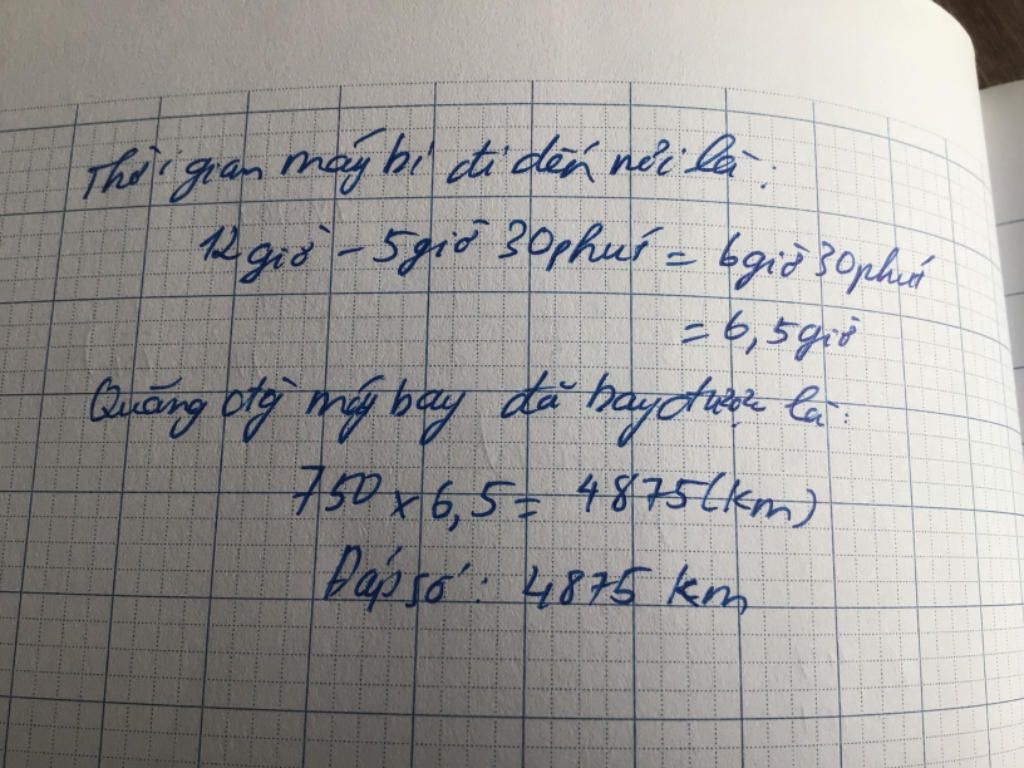 Thời gian máy bi đi đến nơi là:
12 giờ - 5 giờ 30 phút = 6 giờ 30 phút
= 6,5 giờ
Quãng đg máy bay đã bay được là:
750 x 6,5 = 4875 (km)
Đáp số: 4875 km